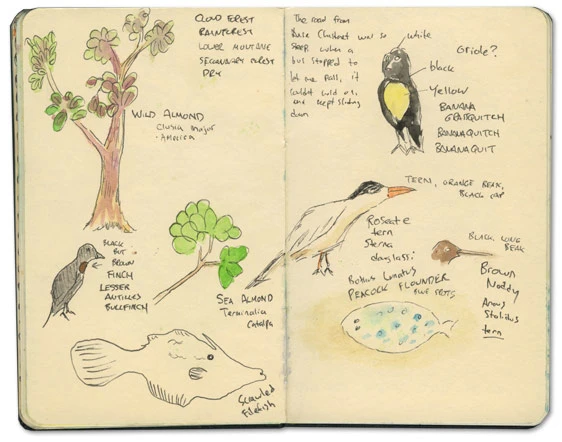 CLOUD FOREST
RAINFOREST
LOWER MONTANE
SECONDARY FOREST
DRY
WILD ALMOND
Clusia major
AMERICA
BLACK
BUT
BROWN
FINCH
LESSER
ANTILLES
BULLFINCH
SEA ALMOND
Terminalia
Catalpa
Scrawled
Filefish
The road from
Chestnut was so
steep when a
bus stopped to
let me pass, it
couldn't hold on,
and kept sliding
down
white
Oriole?
black
Yellow
BANANA
BANANAQUITCH
BANANAQUIT
TERN, ORANGE BEAK,
BLACK CAP
Roseate
tern
Sterna
dougalssi
BLACK, LONG
BEAK
Brown
Noddy
Anous
Stolidus
tern
Bothus lunatus
PEACOCK FLOUNDER
BLUE SPOTS